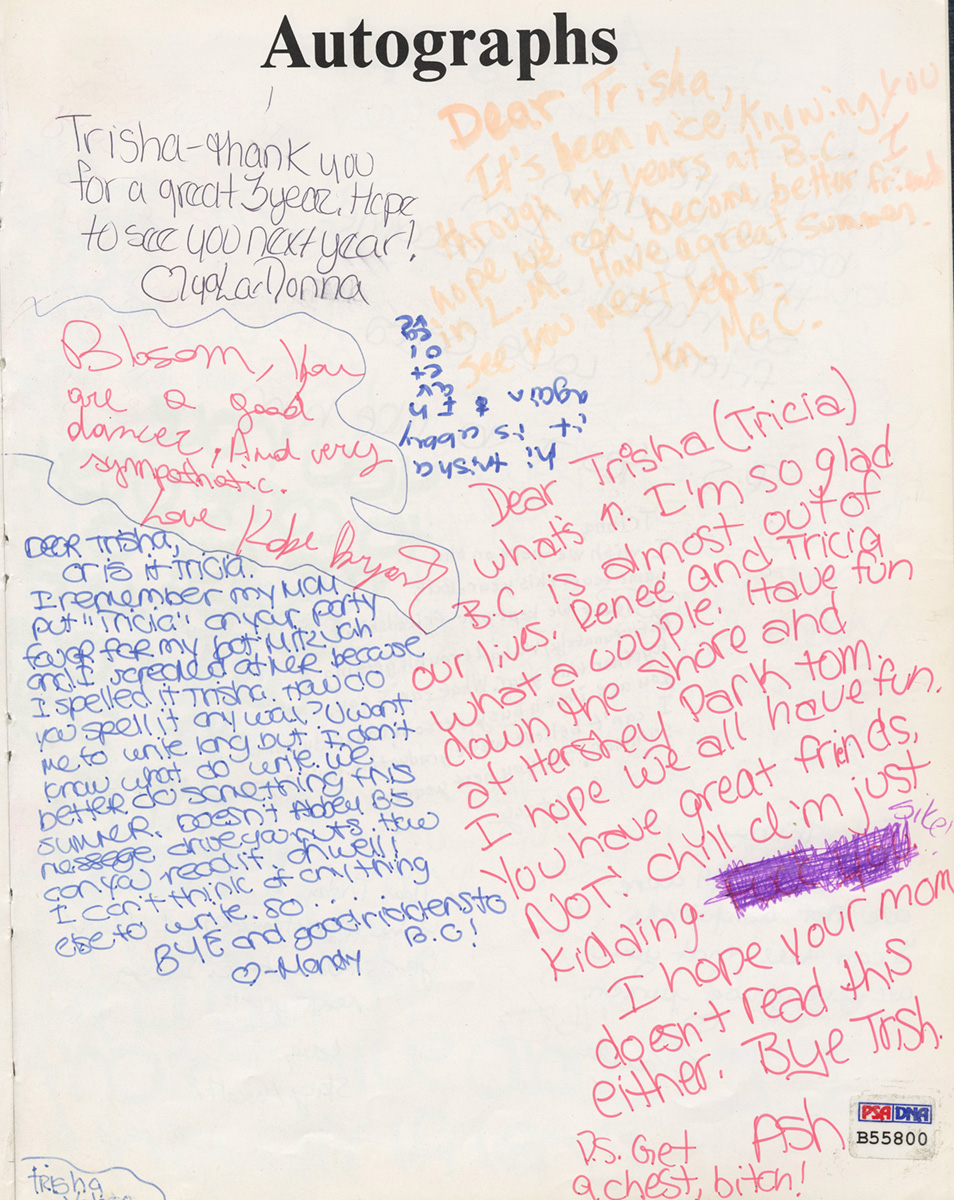 Autographs
Trisha-thank you
for a great 3 year. Hope
to see you next year!
LaDonna
Dear Trisha,
It's been nice knowing you
through my years at B.C. I
hope we can become better friend
in L.M. Have a great summer.
see you next year.
Jen McC.
Blosom, You
are a good
dancer, And very
sympathetic.
Love Kobe Bryant
hi trisha
it is abby
again
Dear Trisha,
or is it Tricia.
I remember my Mom
put "Tricia" on your party
favor for my bat mitzvah
and I screaled at her because
I spelled it Trisha. How do
you spell it any way? U want
me to write long but I don't
know what do write. We
better do something this
summer. Doesn't Abbey B's
message drive you nuts. How
can you read it. oh well!
I can't think of anything
else to write. so...
BYE and good riddens to
B.C!
♡-Mandy
Dear Trisha (Tricia)
what's n. I'm so glad
B.C is almost out of
our lives. Renee and Tricia
what a couple. Have fun
down the shore and
at Hershey Park tom.
I hope we all have fun.
You have great friends,
NOT! chill I'm just
kidding- sike!
I hope your mom
doesn't read this
either. Bye Trish.
Ash
P.S. Get
a chest, bitch!
PSA DNA
B55800
Trisha